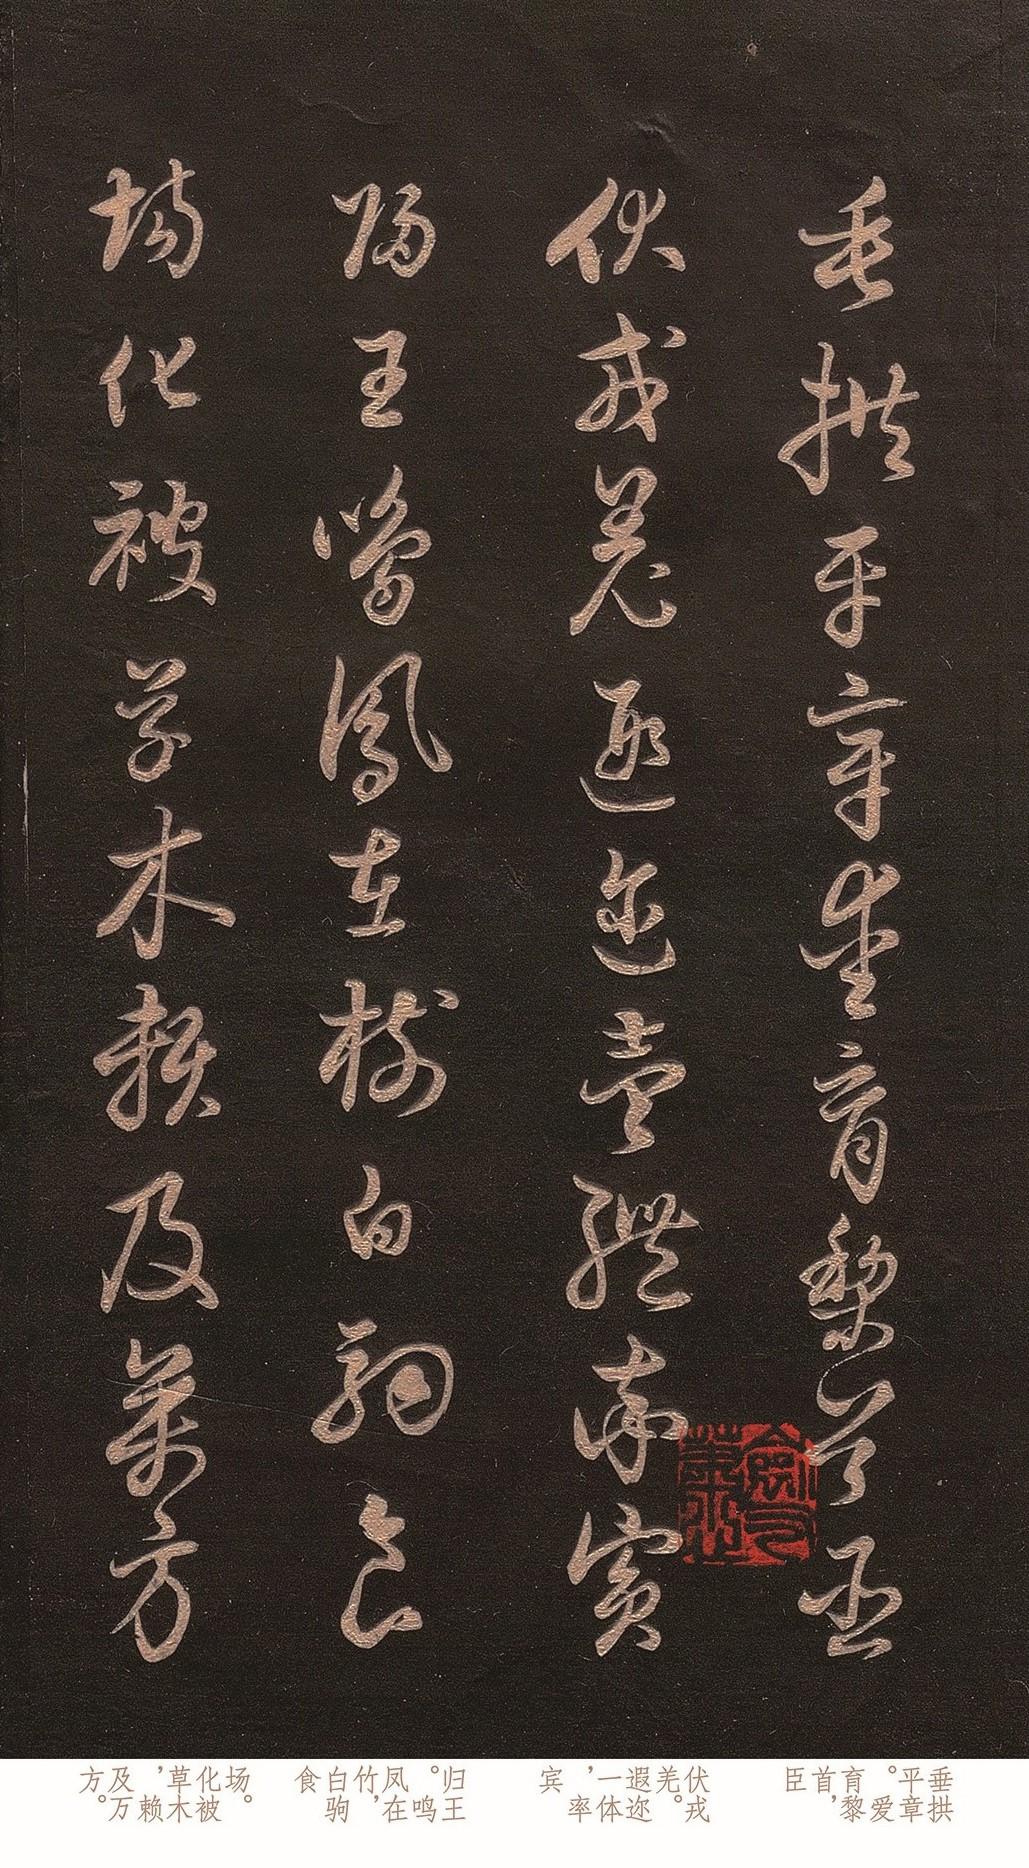 垂拱平章愛育黎首臣
伏戎羌遐邇壹體率賓
歸王鳴鳳在樹白駒食
場化被草木賴及萬方
垂拱平章。爱育黎首，臣
伏戎羌。遐迩一体，率宾
归王。鸣凤在竹，白驹食
场。化被草木，赖及万方。